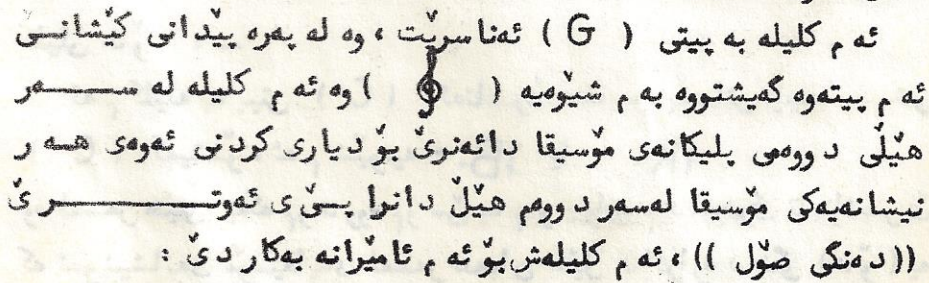 ئه‌م كليله به پيتى ( G ) ئه‌ناسرێت ، وه له په‌ره پێدانى كێشانـى
ئه‌م پيته‌وه گه‌يشتووه به‌م شێوه‌يه ( 𝄞 ) وه ئه‌م كليله له ســـه‌ر
هێڵى دووه‌مى پليكانه‌ى مۆسيقا دائه‌نرێ بۆ ديارى كردنى ئه‌وه‌ى هـه‌ر
نيشانه‌يه‌كى مۆسيقا له‌سه‌ر دووه‌م هێڵ دانرا پـێى ئه‌وتـــــرێ
(( ده‌نگى صۆل )) ، ئه‌م كليله‌ش بۆ ئه‌م ئاميرانه به‌كار دێ :